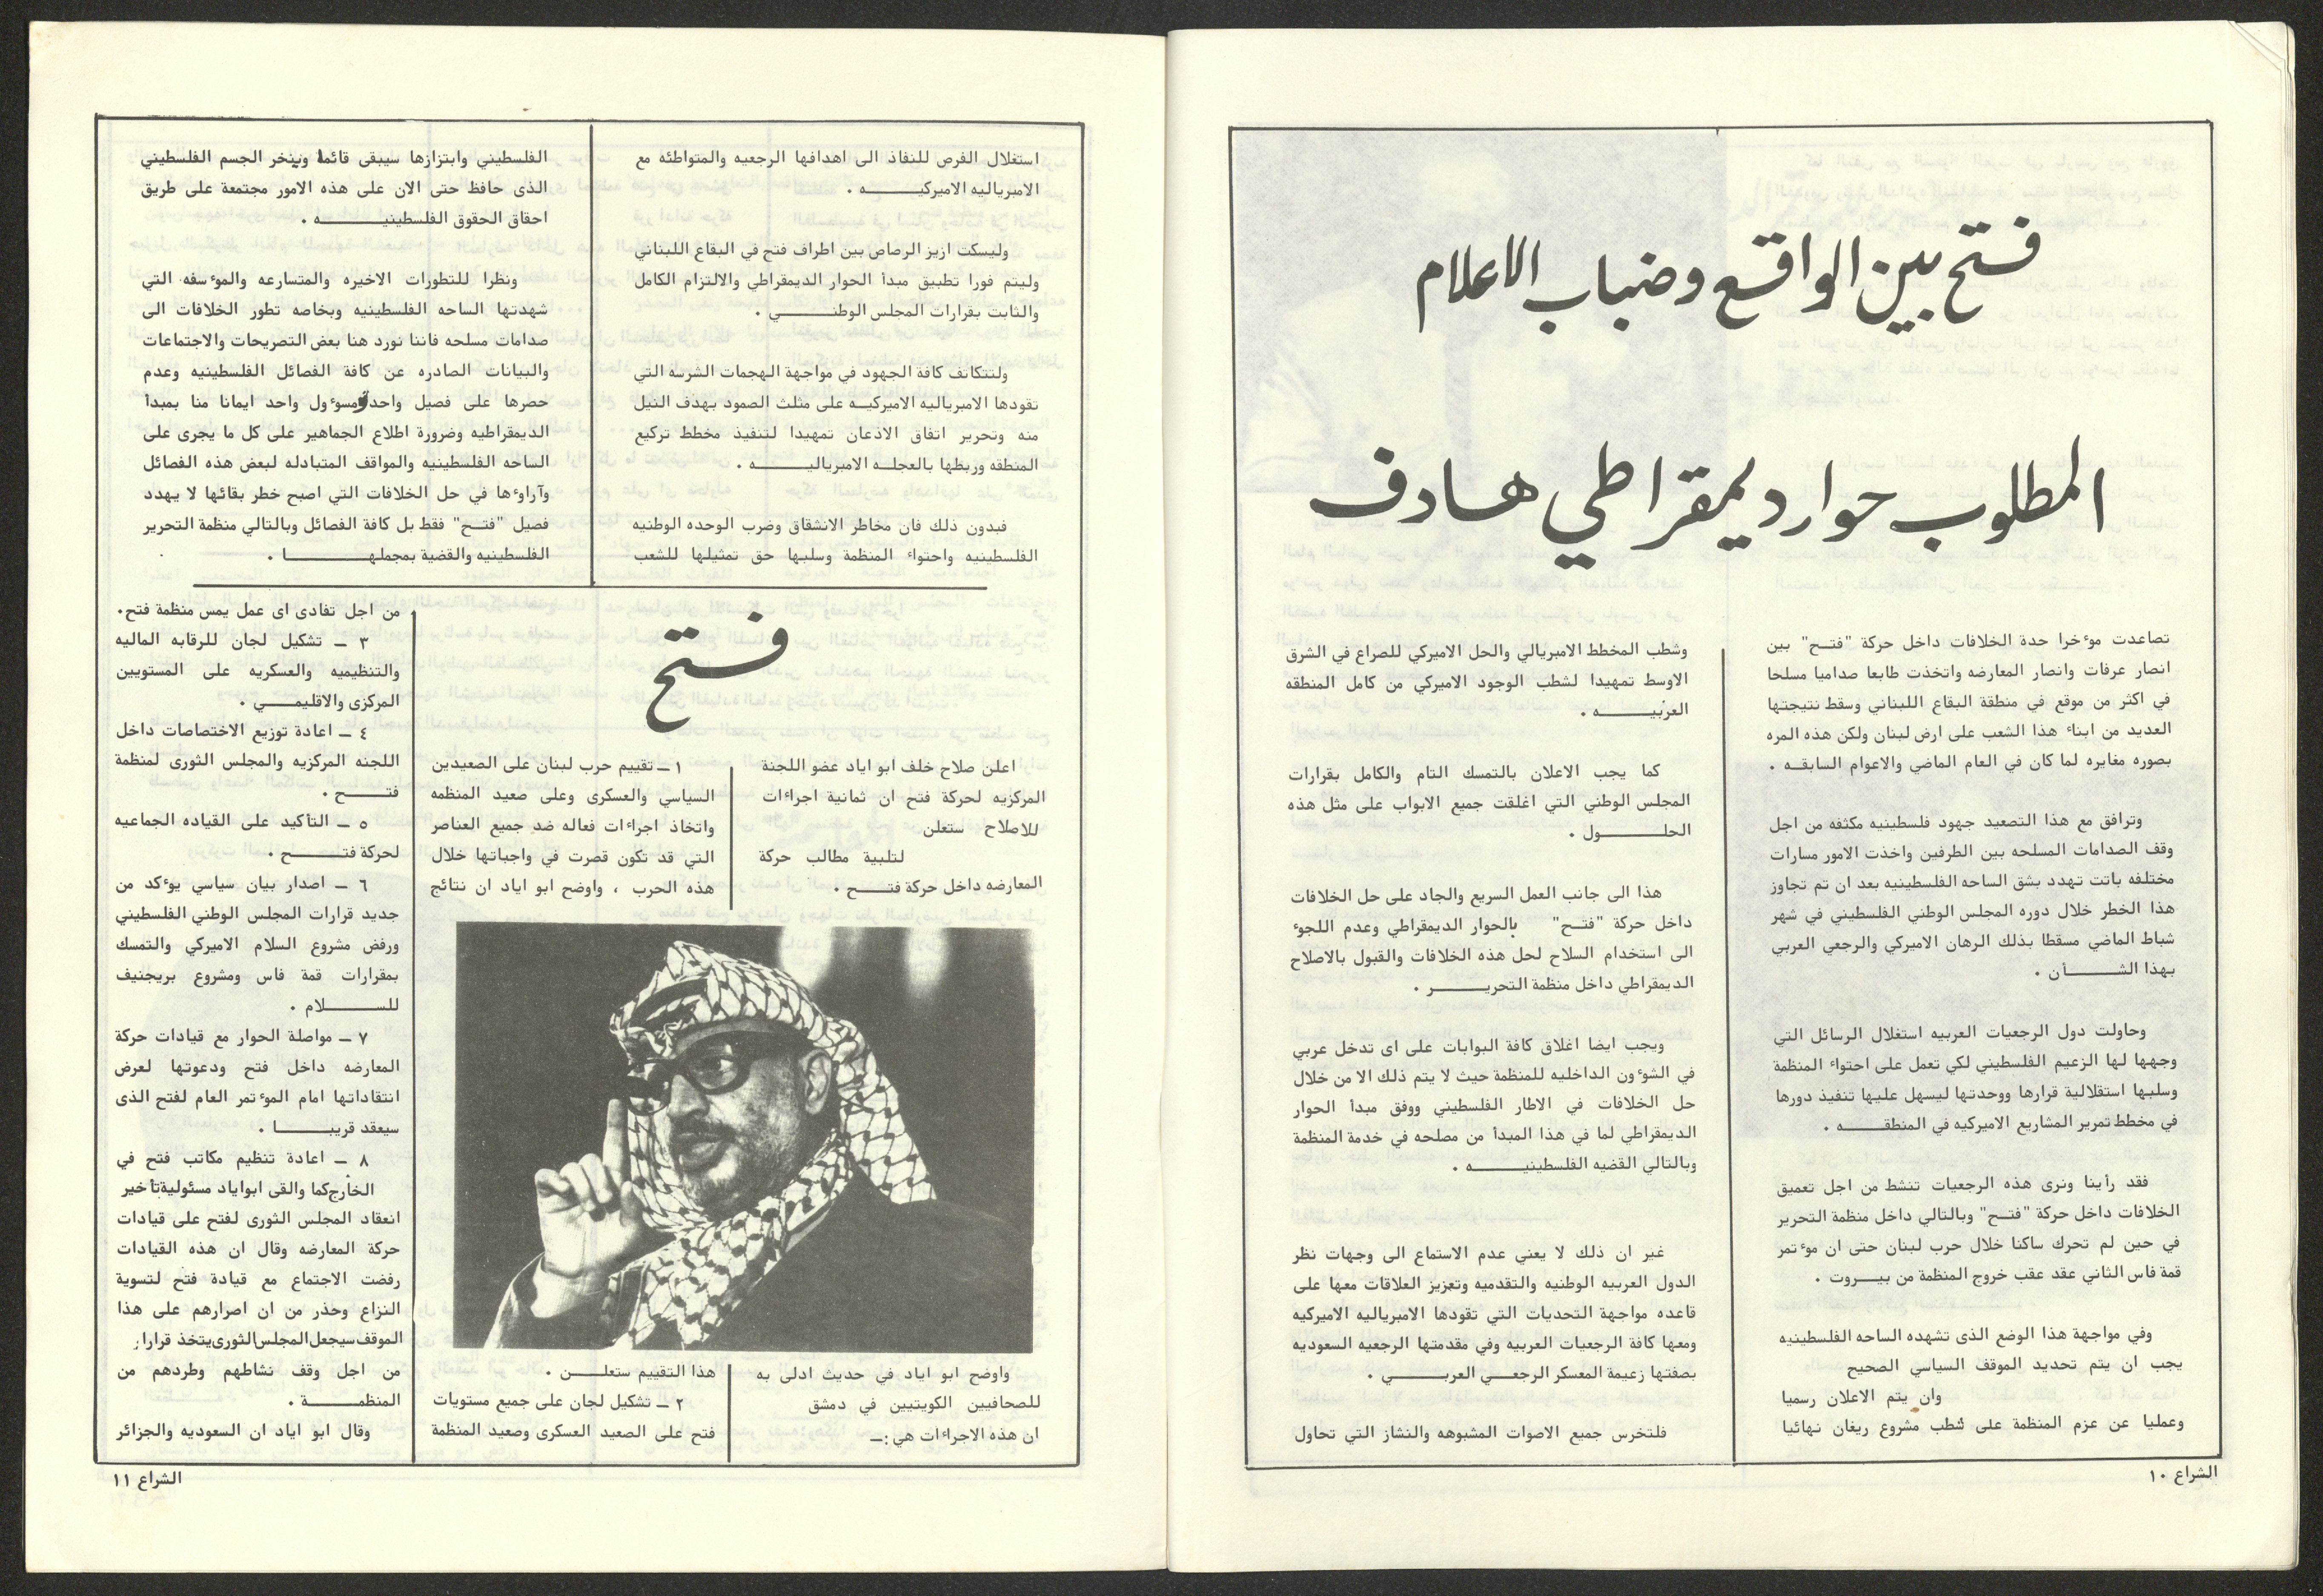 فتح بين الواقع وضباب الاعلام
المطلوب حوار ديمقراطي هادف
تصاعدت موءخرا حدة الخلافات داخل حركة "فتــح" بين
انصار عرفات وانصار المعارضه واتخذت طابعا صداميا مسلحا
في اكثر من موقع في منطقة البقاع اللبناني وسقط نتيجتها
العديد من ابناء هذا الشعب على ارض لبنان ولكن هذه المره
بصوره مغايره لما كان في العام الماضي والاعوام السابقــه .
وترافق مع هذا التصعيد جهود فلسطينيه مكثفه من اجل
وقف الصدامات المسلحه بين الطرفين واخذت الامور مسارات
مختلفه باتت تهدد بشق الساحه الفلسطينيه بعد ان تم تجاوز
هذا الخطر خلال دوره المجلس الوطني الفلسطيني في شهر
شباط الماضي مسقطا بذلك الرهان الاميركي والرجعي العربي
بهذا الشـــــــأن .
وحاولت دول الرجعيات العربيه استغلال الرسائل التي
وجهها لها الزعيم الفلسطيني لكي تعمل على احتواء المنظمة
وسلبها استقلالية قرارها ووحدتها ليسهل عليها تنفيذ دورها
في مخطط تمرير المشاريع الاميركيه في المنطقـــــــه .
فقد رأينا ونرى هذه الرجعيات تنشط من اجل تعميق
الخلافات داخل حركة "فتــح" وبالتالي داخل منظمة التحرير
في حين لم تحرك ساكنا خلال حرب لبنان حتى ان موءتمر
قمة فاس الثاني عقد عقب خروج المنظمة من بيـــروت .
وفي مواجهة هذا الوضع الذى تشهده الساحه الفلسطينيه
يجب ان يتم تحديد الموقف السياسي الصحيح
وان يتم الاعلان رسميا
وعمليا عن عزم المنظمة على شطب مشروع ريغان نهائيا
وشطب المخطط الامبريالي والحل الاميركي للصراع في الشرق
الاوسط تمهيدا لشطب الوجود الاميركي من كامل المنطقه
العربيــــــــه .
كما يجب الاعلان بالتمسك التام والكامل بقرارات
المجلس الوطني التي اغلقت جميع الابواب على مثل هذه
الحلــــــــول .
هذا الى جانب العمل السريع والجاد على حل الخلافات
داخل حركة "فتــح" بالحوار الديمقراطي وعدم اللجوء
الى استخدام السلاح لحل هذه الخلافات والقبول بالاصلاح
الديمقراطي داخل منظمة التحريـــــــر .
ويجب ايضا اغلاق كافة البوابات على اى تدخل عربي
في الشوءون الداخليه للمنظمة حيث لا يتم ذلك الا من خلال
حل الخلافات في الاطار الفلسطيني ووفق مبدأ الحوار
الديمقراطي لما في هذا المبدأ من مصلحه في خدمة المنظمة
وبالتالي القضيه الفلسطينيـــــــــه .
غير ان ذلك لا يعني عدم الاستماع الى وجهات نظر
الدول العربيه الوطنيه والتقدميه وتعزيز العلاقات معها على
قاعده مواجهة التحديات التي تقودها الامبرياليه الاميركيه
ومعها كافة الرجعيات العربيه وفي مقدمتها الرجعيه السعوديه
بصفتها زعيمة المعسكر الرجعــي العربـــــــي .
فلتخرس جميع الاصوات المشبوهه والنشاز التي تحاول
الشراع ١٠
استغلال الفرص للنفاذ الى اهدافها الرجعيه والمتواطئه مع
الامبرياليه الاميركيـــــــــه .
وليسكت ازيز الرصاص بين اطراف فتح في البقاع اللبناني
وليتم فورا تطبيق مبدأ الحوار الديمقراطي والالتزام الكامل
والثابت بقرارات المجلس الوطنـــــــــي .
ولتتكاتف كافة الجهود في مواجهة الهجمات الشرسه التي
تقودها الامبرياليه الاميركيــه على مثلث الصمود بهدف النيل
منه وتحرير اتفاق الاذعان تمهيدا لتنفيذ مخطط تركيع
المنطقه وربطها بالعجلــه الامبرياليــــــــه .
فبدون ذلك فان مخاطر الانشقاق وضرب الوحده الوطنيه
الفلسطينيه واحتواء المنظمة وسلبها حق تمثيلها للشعب
الفلسطيني وابتزازها سيبقى قائما وينخر الجسم الفلسطيني
الذى حافظ حتى الان على هذه الامور مجتمعة على طريق
احقاق الحقوق الفلسطينيــــــــــــه .
ونظرا للتطورات الاخيره والمتسارعه والموءسفه التي
شهدتها الساحه الفلسطينيه وبخاصه تطور الخلافات الى
صدامات مسلحه فاننا نورد هنا بعض التصريحات والاجتماعات
والبيانات الصادره عن كافة الفصائل الفلسطينيه وعدم
حصرها على فصيل واحد ومسوءول واحد ايمانا منا بمبدأ
الديمقراطيه وضرورة اطلاع الجماهير على كل ما يجرى على
الساحه الفلسطينيه والمواقف المتبادله لبعض هذه الفصائل
وآراوءها في حل الخلافات التي اصبح خطر بقائها لا يهدد
فصيل "فتــح" فقط بل كافة الفصائل وبالتالي منظمة التحرير
الفلسطينيه والقضية بمجملهـــــــــــــا .
فتح
اعلن صلاح خلف ابو اياد عضو اللجنة
المركزيه لحركة فتح ان ثمانية اجراءات
للاصلاح ستعلن
لتلبية مطالب حركة
المعارضه داخل حركة فتـــــح .
واوضح ابو اياد في حديث ادلى به
للصحافيين الكويتيين في دمشق
ان هذه الاجراءات هي :ــ
١ ــ تقييم حرب لبنان على الصعيدين
السياسي والعسكرى وعلى صعيد المنظمه
واتخاذ اجراءات فعاله ضد جميع العناصر
التي قد تكون قصرت في واجباتها خلال
هذه الحرب ، واوضح ابو اياد ان نتائج
هذا التقييم ستعلـــــن .
٢ ــ تشكيل لجان على جميع مستويات
فتح على الصعيد العسكرى وصعيد المنظمة
من اجل تفادى اى عمل يمس منظمة فتح.
٣ ــ تشكيل لجان للرقابه الماليه
والتنظيميه والعسكريه على المستويين
المركزى والاقليمـــــي .
٤ ــ اعادة توزيع الاختصاصات داخل
اللجنه المركزيه والمجلس الثورى لمنظمة
فتـــــــح .
٥ ــ التأكيد على القياده الجماعيه
لحركة فتـــــــــح .
٦ ــ اصدار بيان سياسي يوءكد من
جديد قرارات المجلس الوطني الفلسطيني
ورفض مشروع السلام الاميركي والتمسك
بمقرارات قمة فاس ومشروع بريجنيف
للســــــــلام .
٧ ــ مواصلة الحوار مع قيادات حركة
المعارضه داخل فتح ودعوتها لعرض
انتقاداتها امام الموءتمر العام لفتح الذى
سيعقد قريبــــــــا .
٨ ــ اعادة تنظيم مكاتب فتح في
الخارج كما والقى ابو اياد مسئولية تأخير
انعقاد المجلس الثورى لفتح على قيادات
حركة المعارضه وقال ان هذه القيادات
رفضت الاجتماع مع قيادة فتح لتسوية
النزاع وحذر من ان اصرارهم على هذا
الموقف سيجعل المجلس الثورى يتخذ قرارا
من اجل وقف نشاطهم وطردهم من
المنظمـــــــــة .
وقال ابو اياد ان السعوديه والجزائر
الشراع ١١